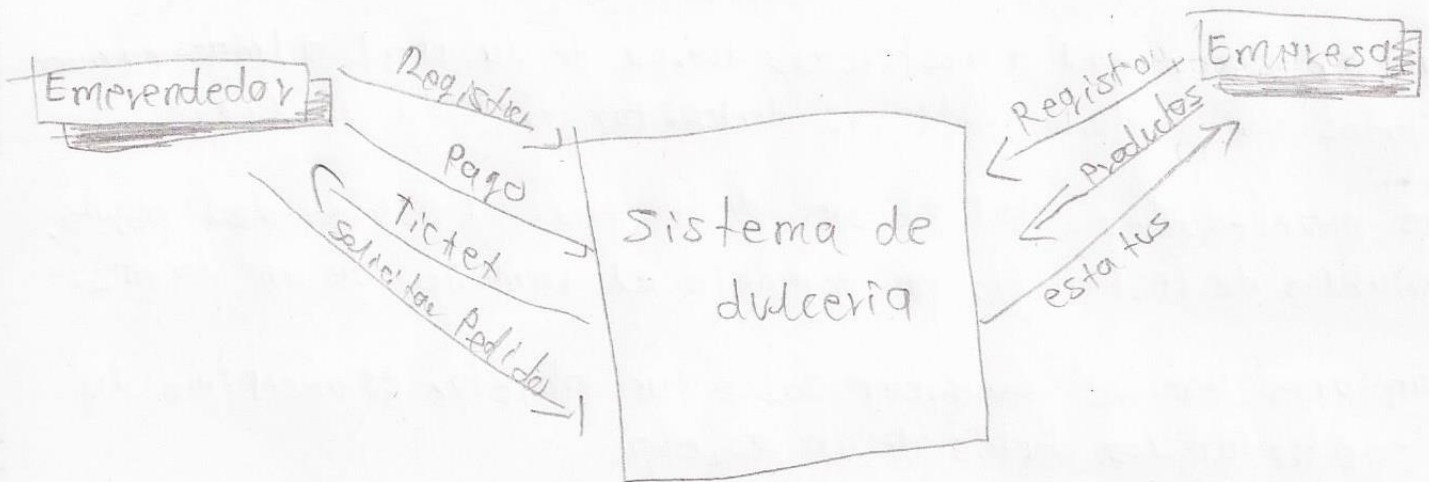 Emprendedor
Registro
Pago
Tictet
Solicitar Pedidos
Sistema de
dulceria
Empresa
Registro
Productos
estatus